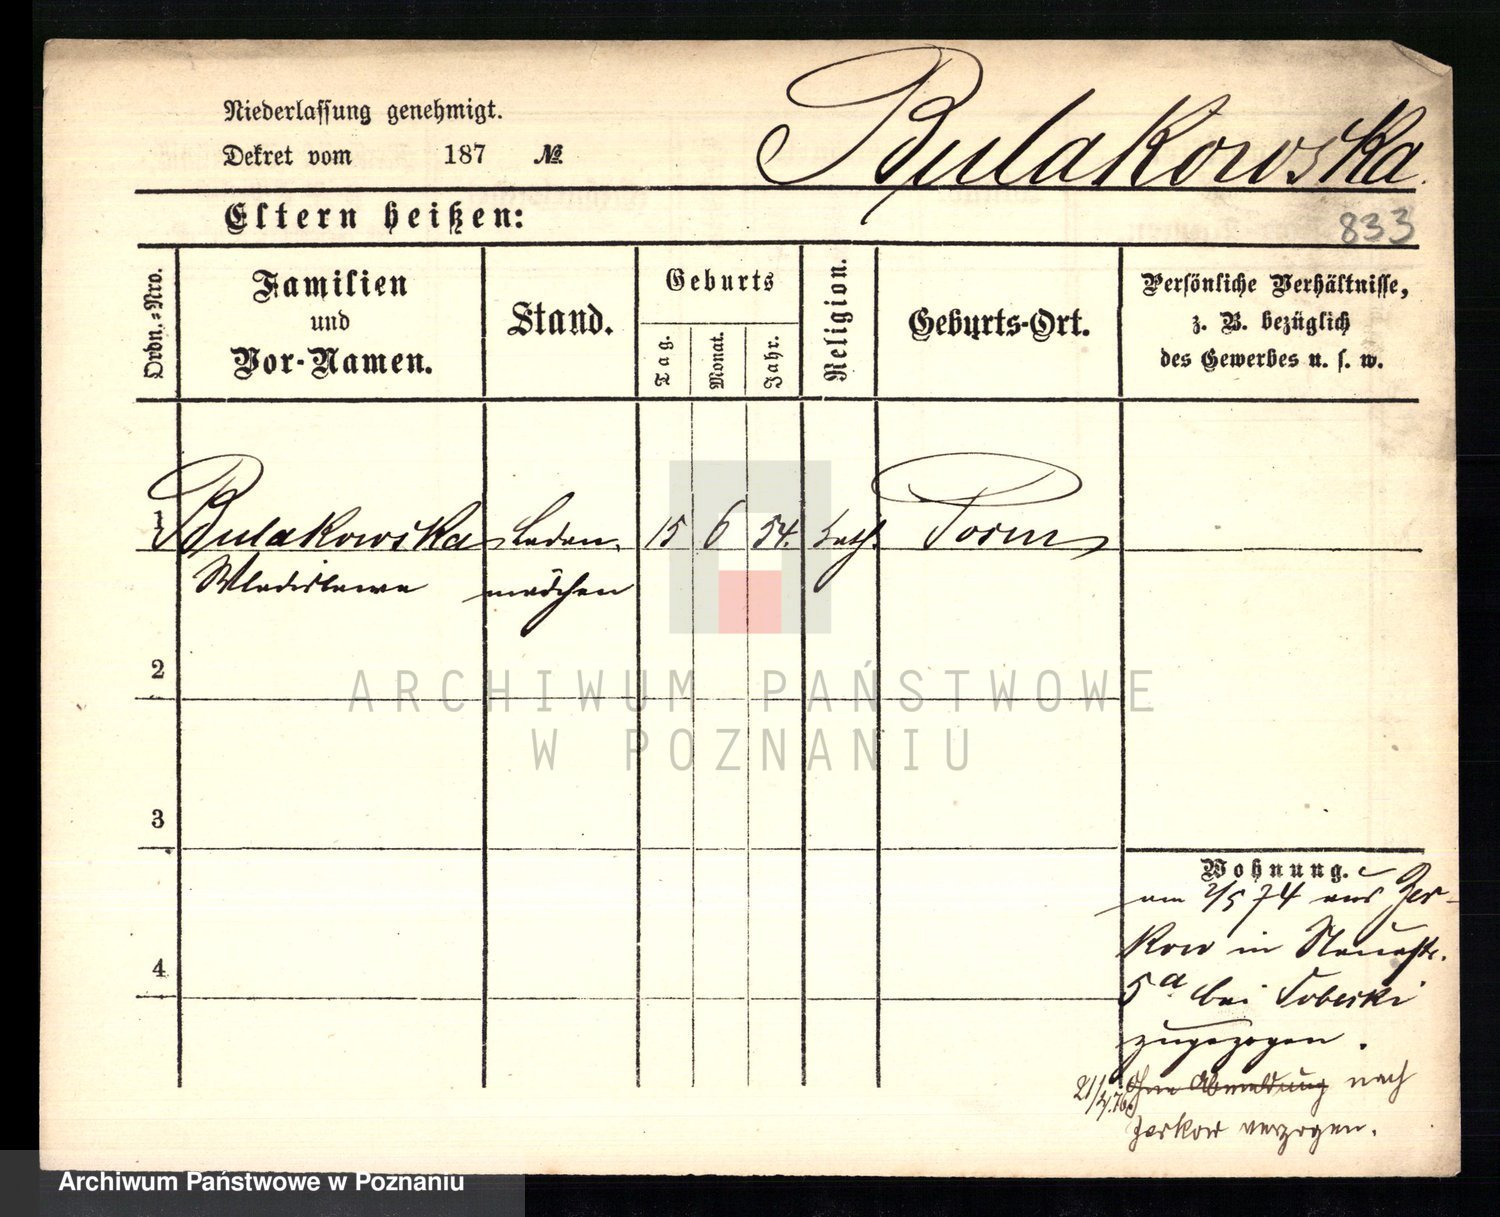 Niederlassung genehmigt.
Dekret vom 187 №
Bulakowska.
Eltern heißen:
833
Ordn.-Nro.
Familien
und
Vor-Namen.
Stand.
Geburts
Tag.
Monat.
Jahr.
Religion.
Geburts-Ort.
Persönliche Verhältnisse,
z. B. bezüglich
des Gewerbes u. s. w.
1 Bulakowska Laden- 15 6 54. kath.
Wladislawa mädchen
2
3
4
ARCHIWUM PAŃSTWOWE
W POZNANIU
Wohnung.
am 2/5 74 aus Zer-
kow in Neuestr.
5a bei Sobeski
zugezogen.
21/4.76 Ohne Abmeldung nach
Zerkow verzogen.
Archiwum Państwowe w Poznaniu